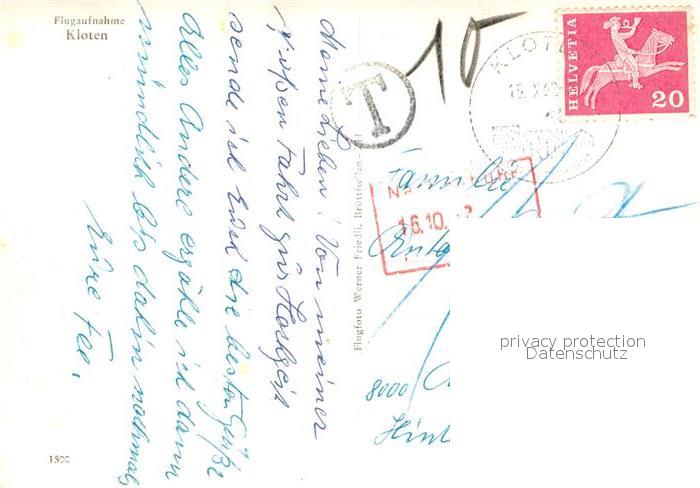 Flugaufnahme
Kloten
Meine Lieben! Von meiner
großen Fahrt zur Hochzeit
sende ich Euch die besten Grüße
Alles Andere erzähle ich dann
mündlich bis dahin nochmals
Eure Fee.
1500
Flugfoto Werner Friedli, Brüttisellen
T
10
KLOTEN
15.X
HELVETIA
20
16.10.
Familie
8000
Hint
privacy protection
Datenschutz